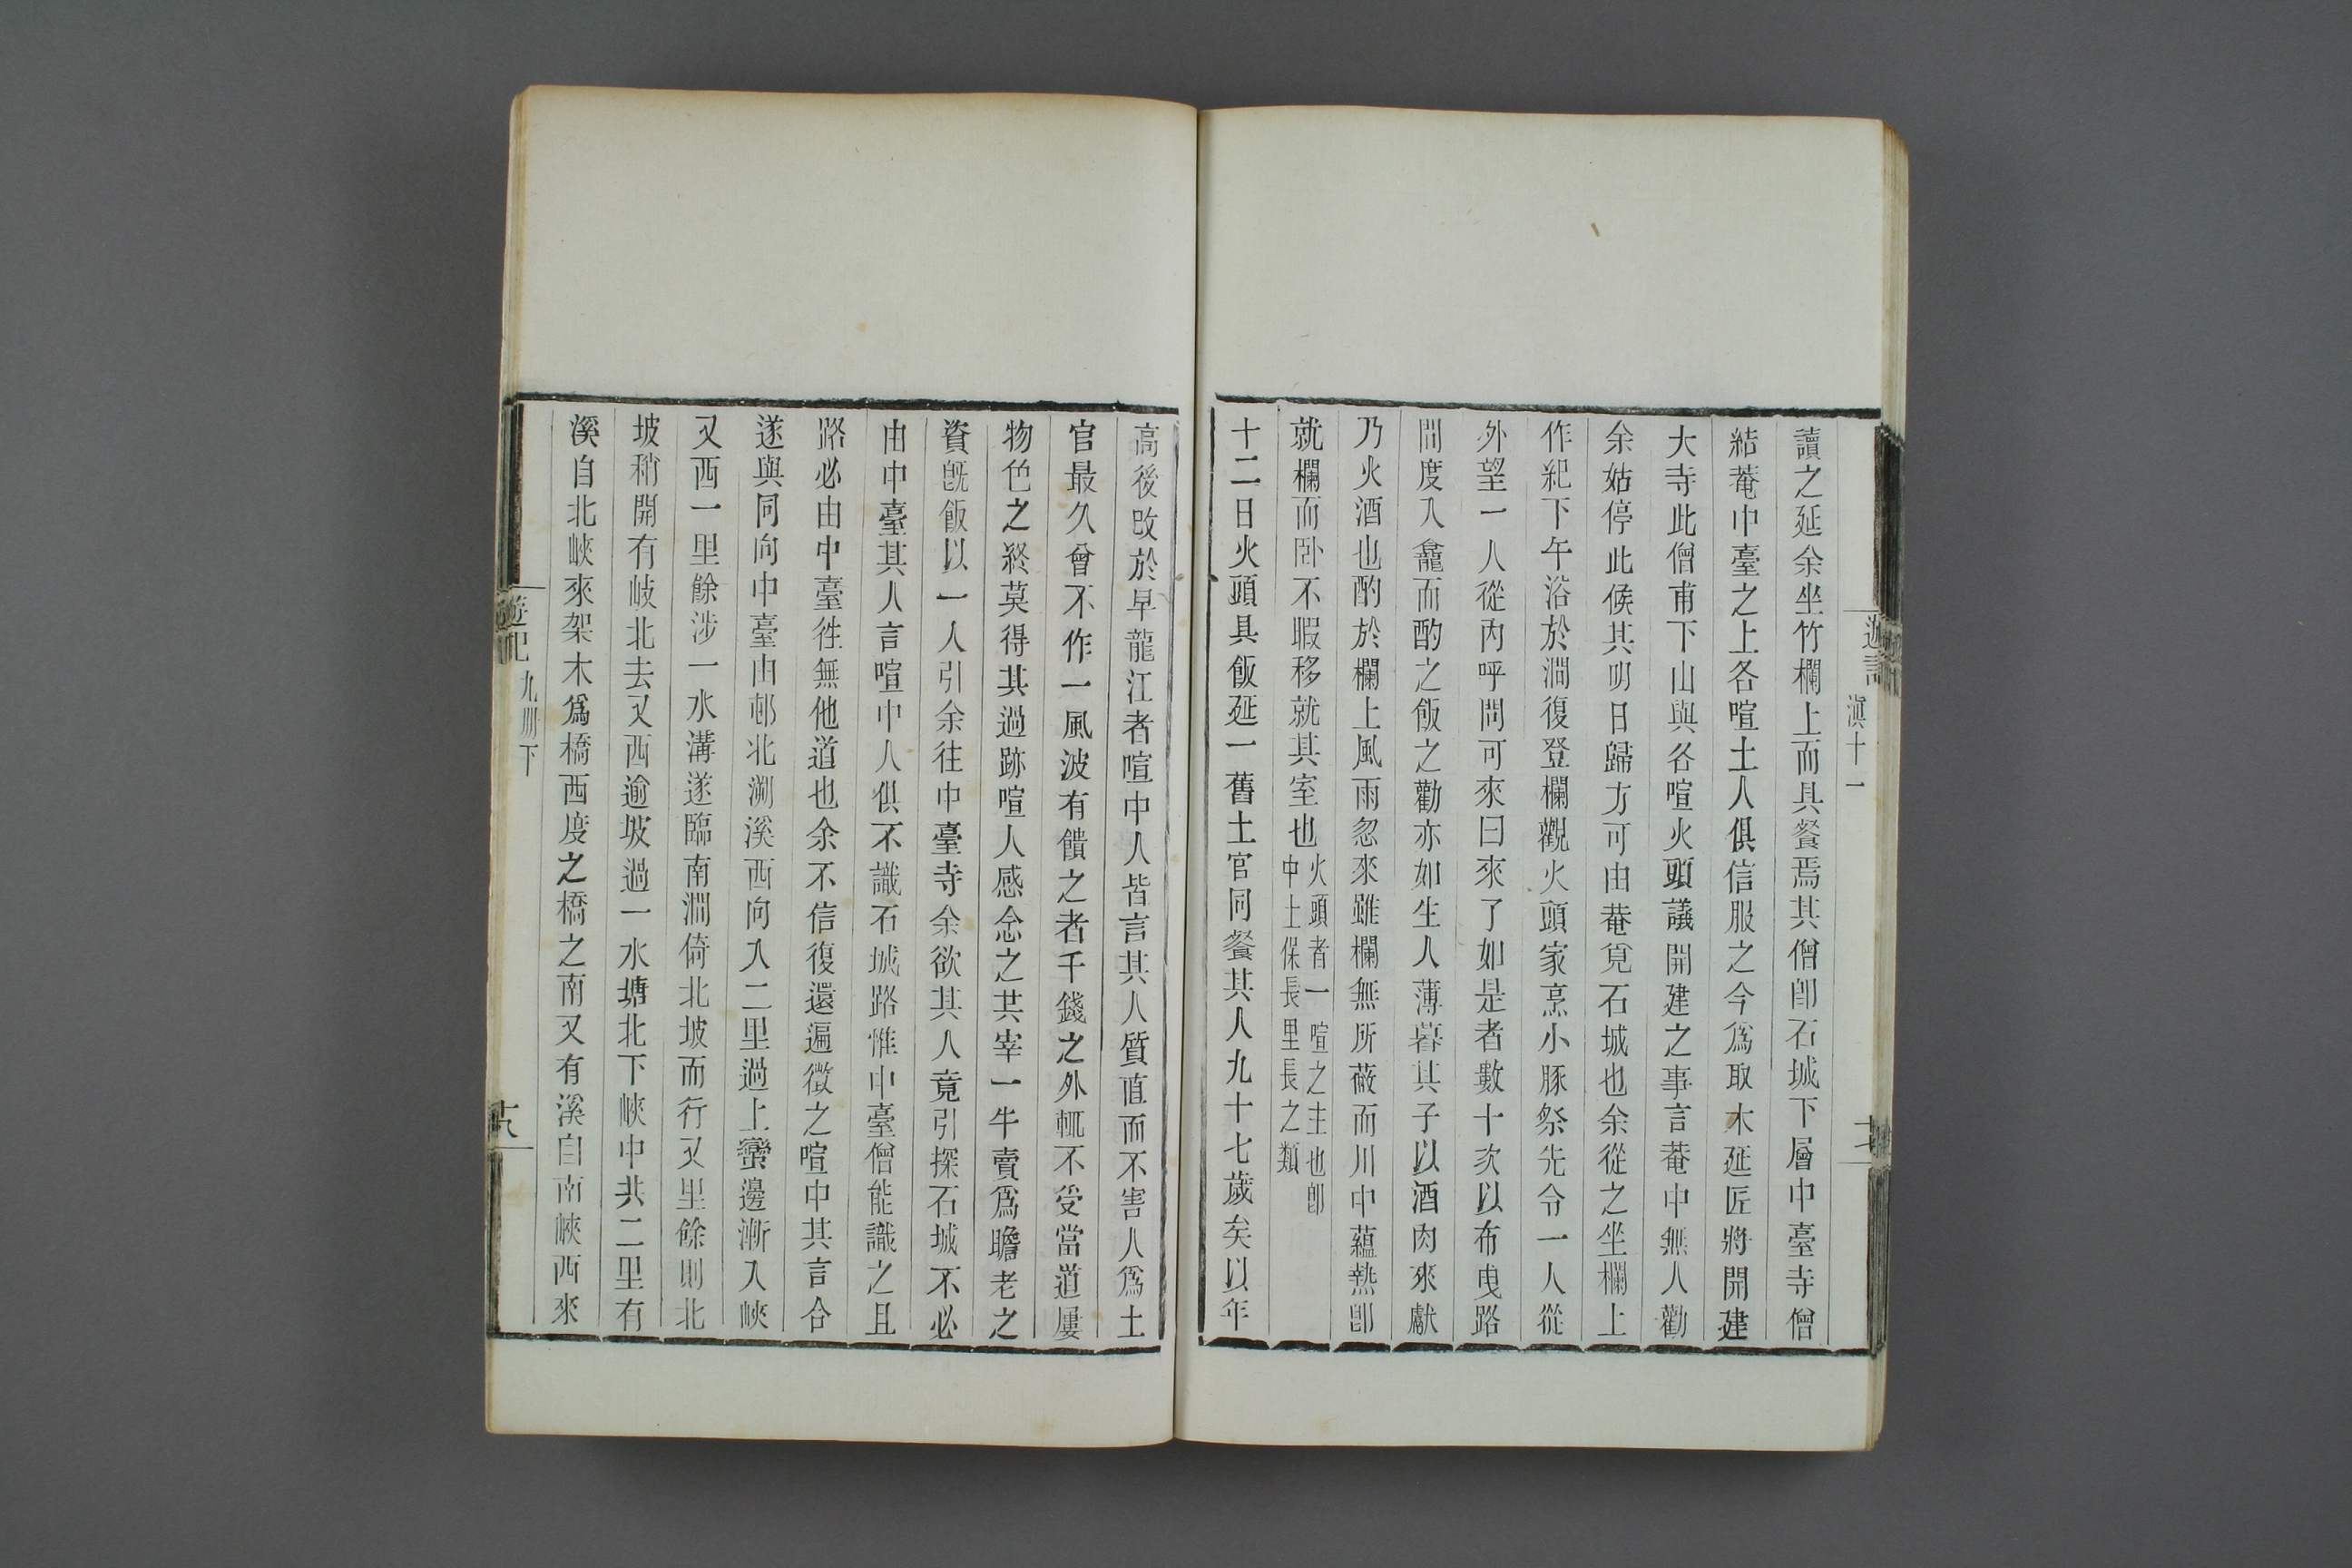 遊記
滇十一
讀之延余坐竹欄上而具餐焉其僧卽石城下層中臺寺僧
結菴中臺之上各喧土人俱信服之今爲取木延匠將開建
大寺此僧甫下山與各喧火頭議開建之事言菴中無人勸
余姑停此候其明日歸方可由菴覓石城也余從之坐欄上
作紀下午浴於澗復登欄觀火頭家烹小豚祭先令一人從
外望一人從內呼問可來曰來了如是者數十次以布曳路
間度入龕而酌之飯之勸亦如生人薄暮其子以酒肉來獻
乃火酒也酌於欄上風雨忽來雖欄無所蔽而川中蘊熱卽
就欄而卧不暇移就其室也火頭者一喧之主也卽
中土保長里長之類
十二日火頭具飯延一舊土官同餐其人九十七歲矣以年
高後改於早龍江者喧中人皆言其人質直而不害人爲土
官最久曾不作一風波有饋之者千錢之外輒不受當道屢
物色之終莫得其過跡喧人感念之共宰一牛賣爲贍老之
資旣飯以一人引余往中臺寺余欲其人竟引探石城不必
由中臺其人言喧中人俱不識石城路惟中臺僧能識之且
路必由中臺徃無他道也余不信復還遍徵之喧中其言合
遂與同向中臺由邨北溯溪西向入二里過上蠻邊漸入峽
又西一里餘涉一水溝遂臨南澗倚北坡而行又里餘則北
坡稍開有岐北去又西逾坡過一水塘北下峽中共二里有
溪自北峽來架木爲橋西度之橋之南又有溪自南峽西來
遊記
九册下
十八